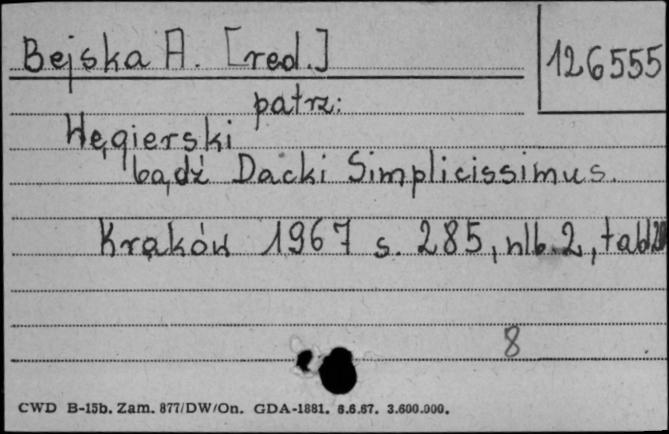 Bejska A. [red.]
126555
patrz:
Węgierski
bądź Dacki Simplicissimus.
Kraków 1967 s. 285, nlb. 2, tabl.
8
CWD B-15b. Zam. 877/DW/On. GDA-1881. 6.6.67. 3.600.000.